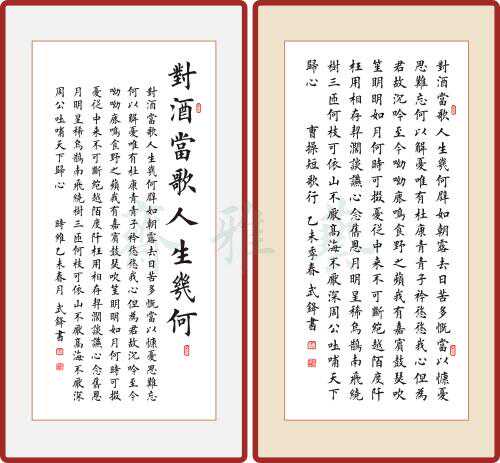 對酒當歌人生幾何
對酒當歌人生幾何譬如朝露去日苦多慨當以慷憂思難忘
何以解憂唯有杜康青青子衿悠悠我心但為君故沉吟至今
呦呦鹿鳴食野之蘋我有嘉賓鼓瑟吹笙明明如月何時可掇
憂從中来不可斷絕越陌度阡枉用相存契闊談讌心念舊恩
月明星稀烏鵲南飛繞樹三匝何枝可依山不厭高海不厭深
周公吐哺天下歸心 時維乙未春月 式鋒書
對酒當歌人生幾何譬如朝露去日苦多慨當以慷憂
思難忘何以解憂唯有杜康青青子衿悠悠我心但為
君故沉吟至今呦呦鹿鳴食野之蘋我有嘉賓鼓瑟吹
笙明明如月何時可掇憂從中来不可斷絕越陌度阡
枉用相存契闊談讌心念舊恩月明星稀烏鵲南飛繞
樹三匝何枝可依山不厭高海不厭深周公吐哺天下
歸心 曹操短歌行 乙未季春 式鋒書
雅